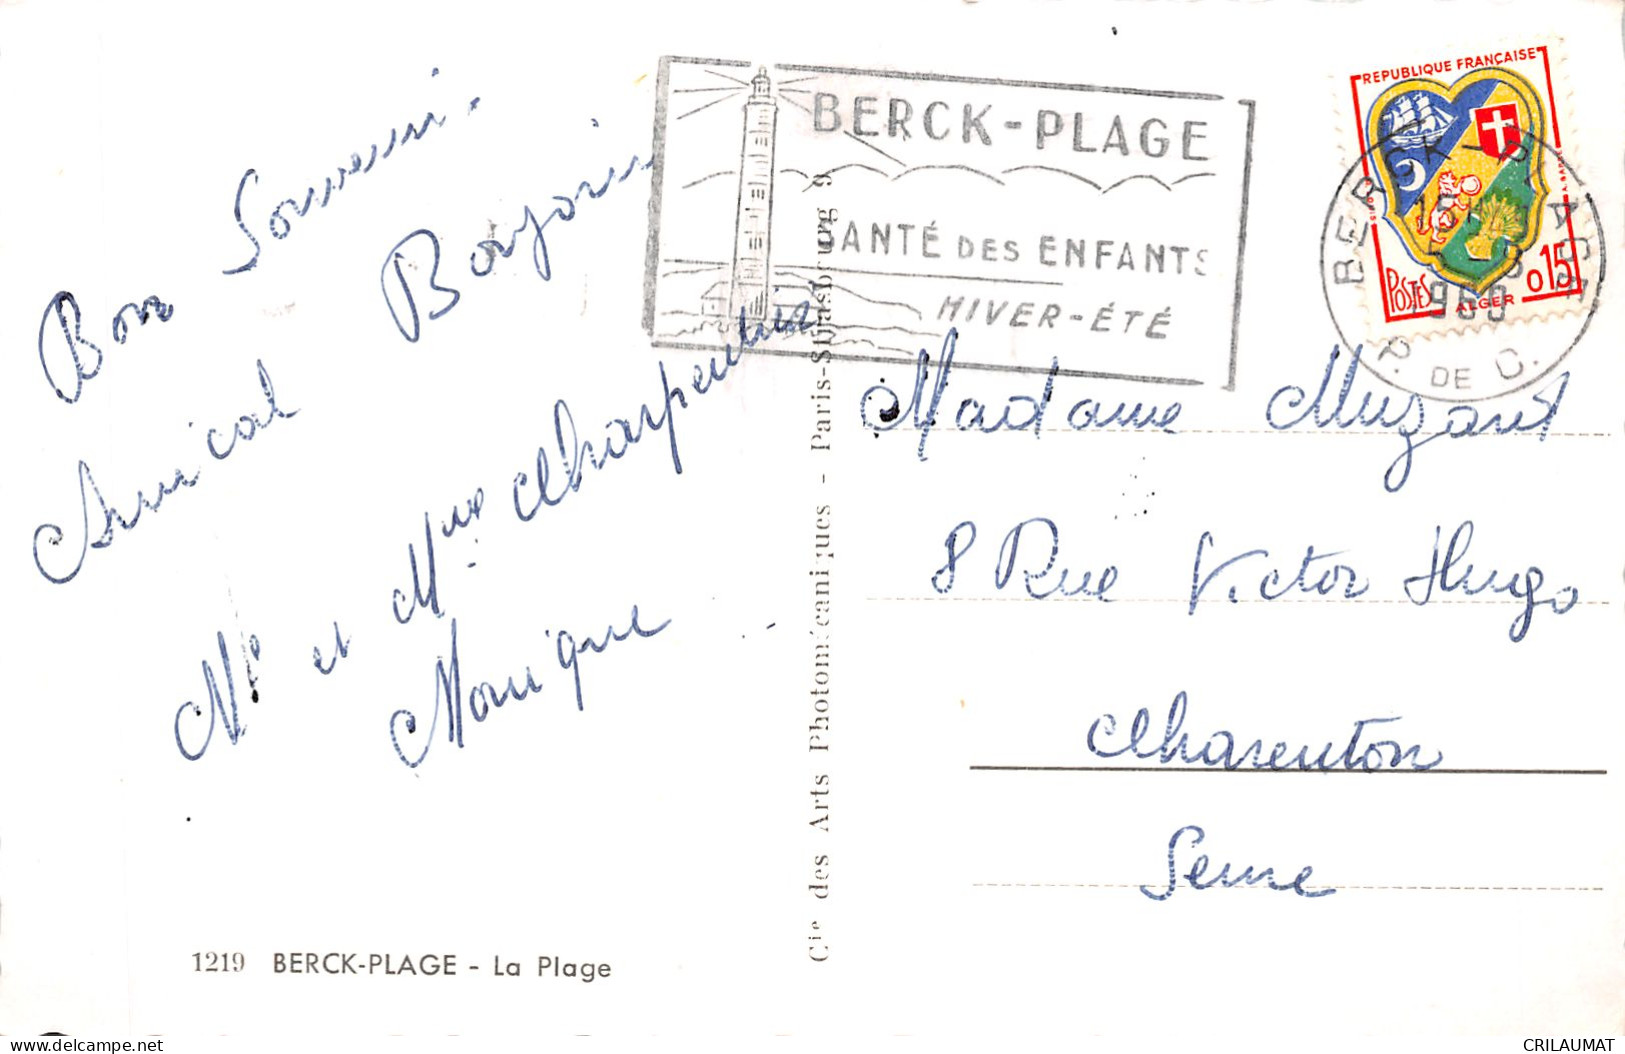 Bon Souvenir.
Amical Bonjour
Mr et Mme Charpentier
Monique
1219 BERCK-PLAGE - La Plage
Cie des Arts Photomécaniques - Paris-Strasbourg 9
BERCK-PLAGE
SANTÉ DES ENFANTS
HIVER-ÉTÉ
REPUBLIQUE FRANÇAISE
POSTES
ALGER
0,15
BERCK-PLAGE
P. DE C.
Madame Muzard
8 Rue Victor Hugo
Charenton
Seine
delcampe.net
CRILAUMAT